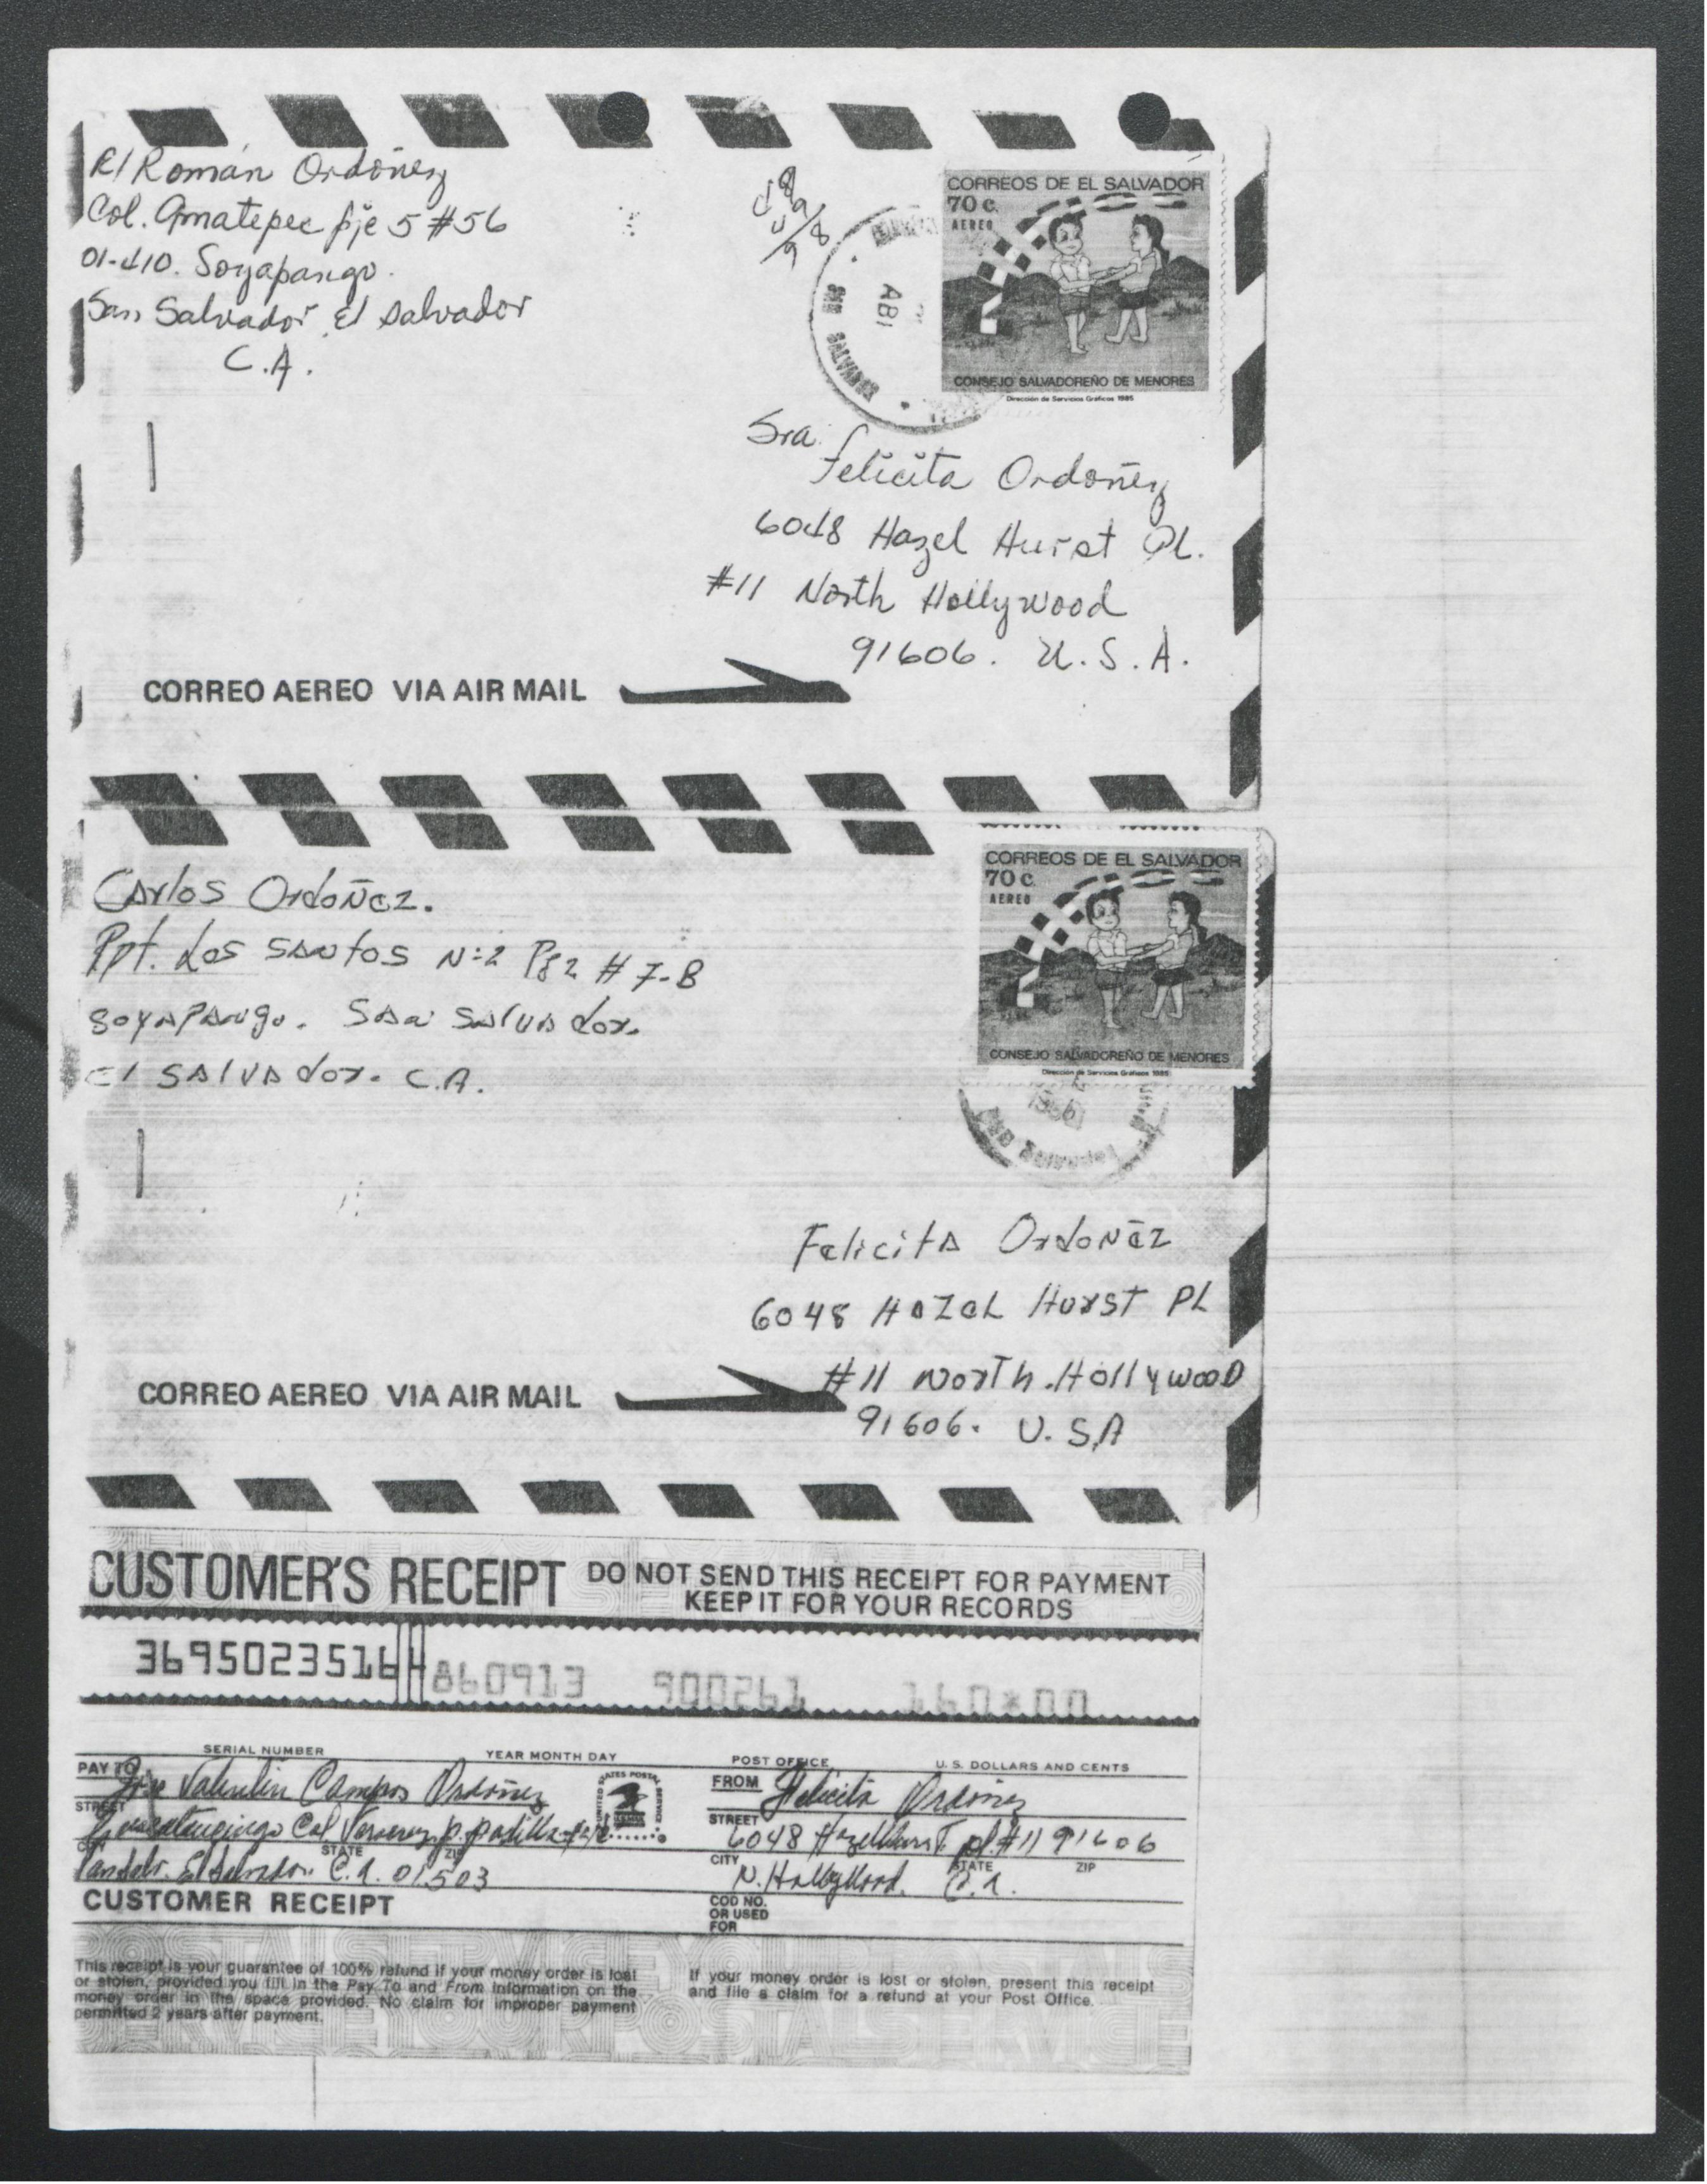 R/ Román Ordóñez
Col. Amatepec pje 5 #56
01-410. Soyapango.
San Salvador, El Salvador
C.A.
CORREOS DE EL SALVADOR
70 c.
AEREO
CONSEJO SALVADOREÑO DE MENORES
Dirección de Servicios Gráficos 1985
ABI
SALVADOR
Sra.
Felicita Ordoñez
6048 Hazel Hurst Pl.
#11 North Hollywood
91606. U.S.A.
CORREO AEREO VIA AIR MAIL
Carlos Ordoñez.
Ppt. Los Santos N:2 Pje 2 # 7-B
Soyapango. San Salvador.
El Salvador. C.A.
CORREOS DE EL SALVADOR
70 c.
AEREO
CONSEJO SALVADOREÑO DE MENORES
Dirección de Servicios Gráficos 1985
1986
Felicita Ordoñez
6048 Hazel Hurst PL
#11 North.Hollywood
91606. U.S.A
CORREO AEREO VIA AIR MAIL
CUSTOMER'S RECEIPT DO NOT SEND THIS RECEIPT FOR PAYMENT
KEEP IT FOR YOUR RECORDS
36950235164 860913 900261 160*00
SERIAL NUMBER YEAR MONTH DAY POST OFFICE U.S. DOLLARS AND CENTS
PAY TO Jose Valentin Campos Ordoñez FROM Felicita Ordoñez
STREET Cuscatancingo Col Veracruz p. padilla STREET 6048 Hazelhurst pl. #11 91606
STATE ZIP CITY STATE ZIP
Sansalv. El Salvador. C.A. 01503 N. Hollywood. C.A.
CUSTOMER RECEIPT COD NO.
OR USED
FOR
UNITED STATES POSTAL SERVICE
This receipt is your guarantee of 100% refund if your money order is lost
or stolen, provided you fill in the Pay To and From information on the
money order in the space provided. No claim for improper payment
permitted 2 years after payment.
If your money order is lost or stolen, present this receipt
and file a claim for a refund at your Post Office.